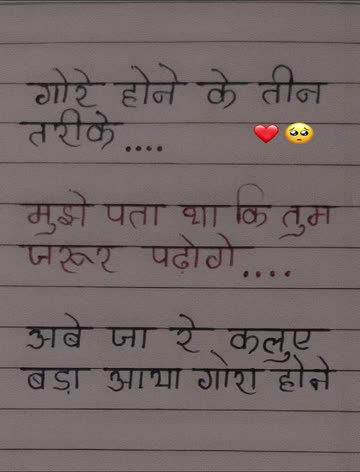 गोरे होने के तीन
तरीके.... ❤️🥺
मुझे पता था कि तुम
जरूर पढ़ोगे....
अबे जा रे कलुए
बड़ा आया गोरा होने